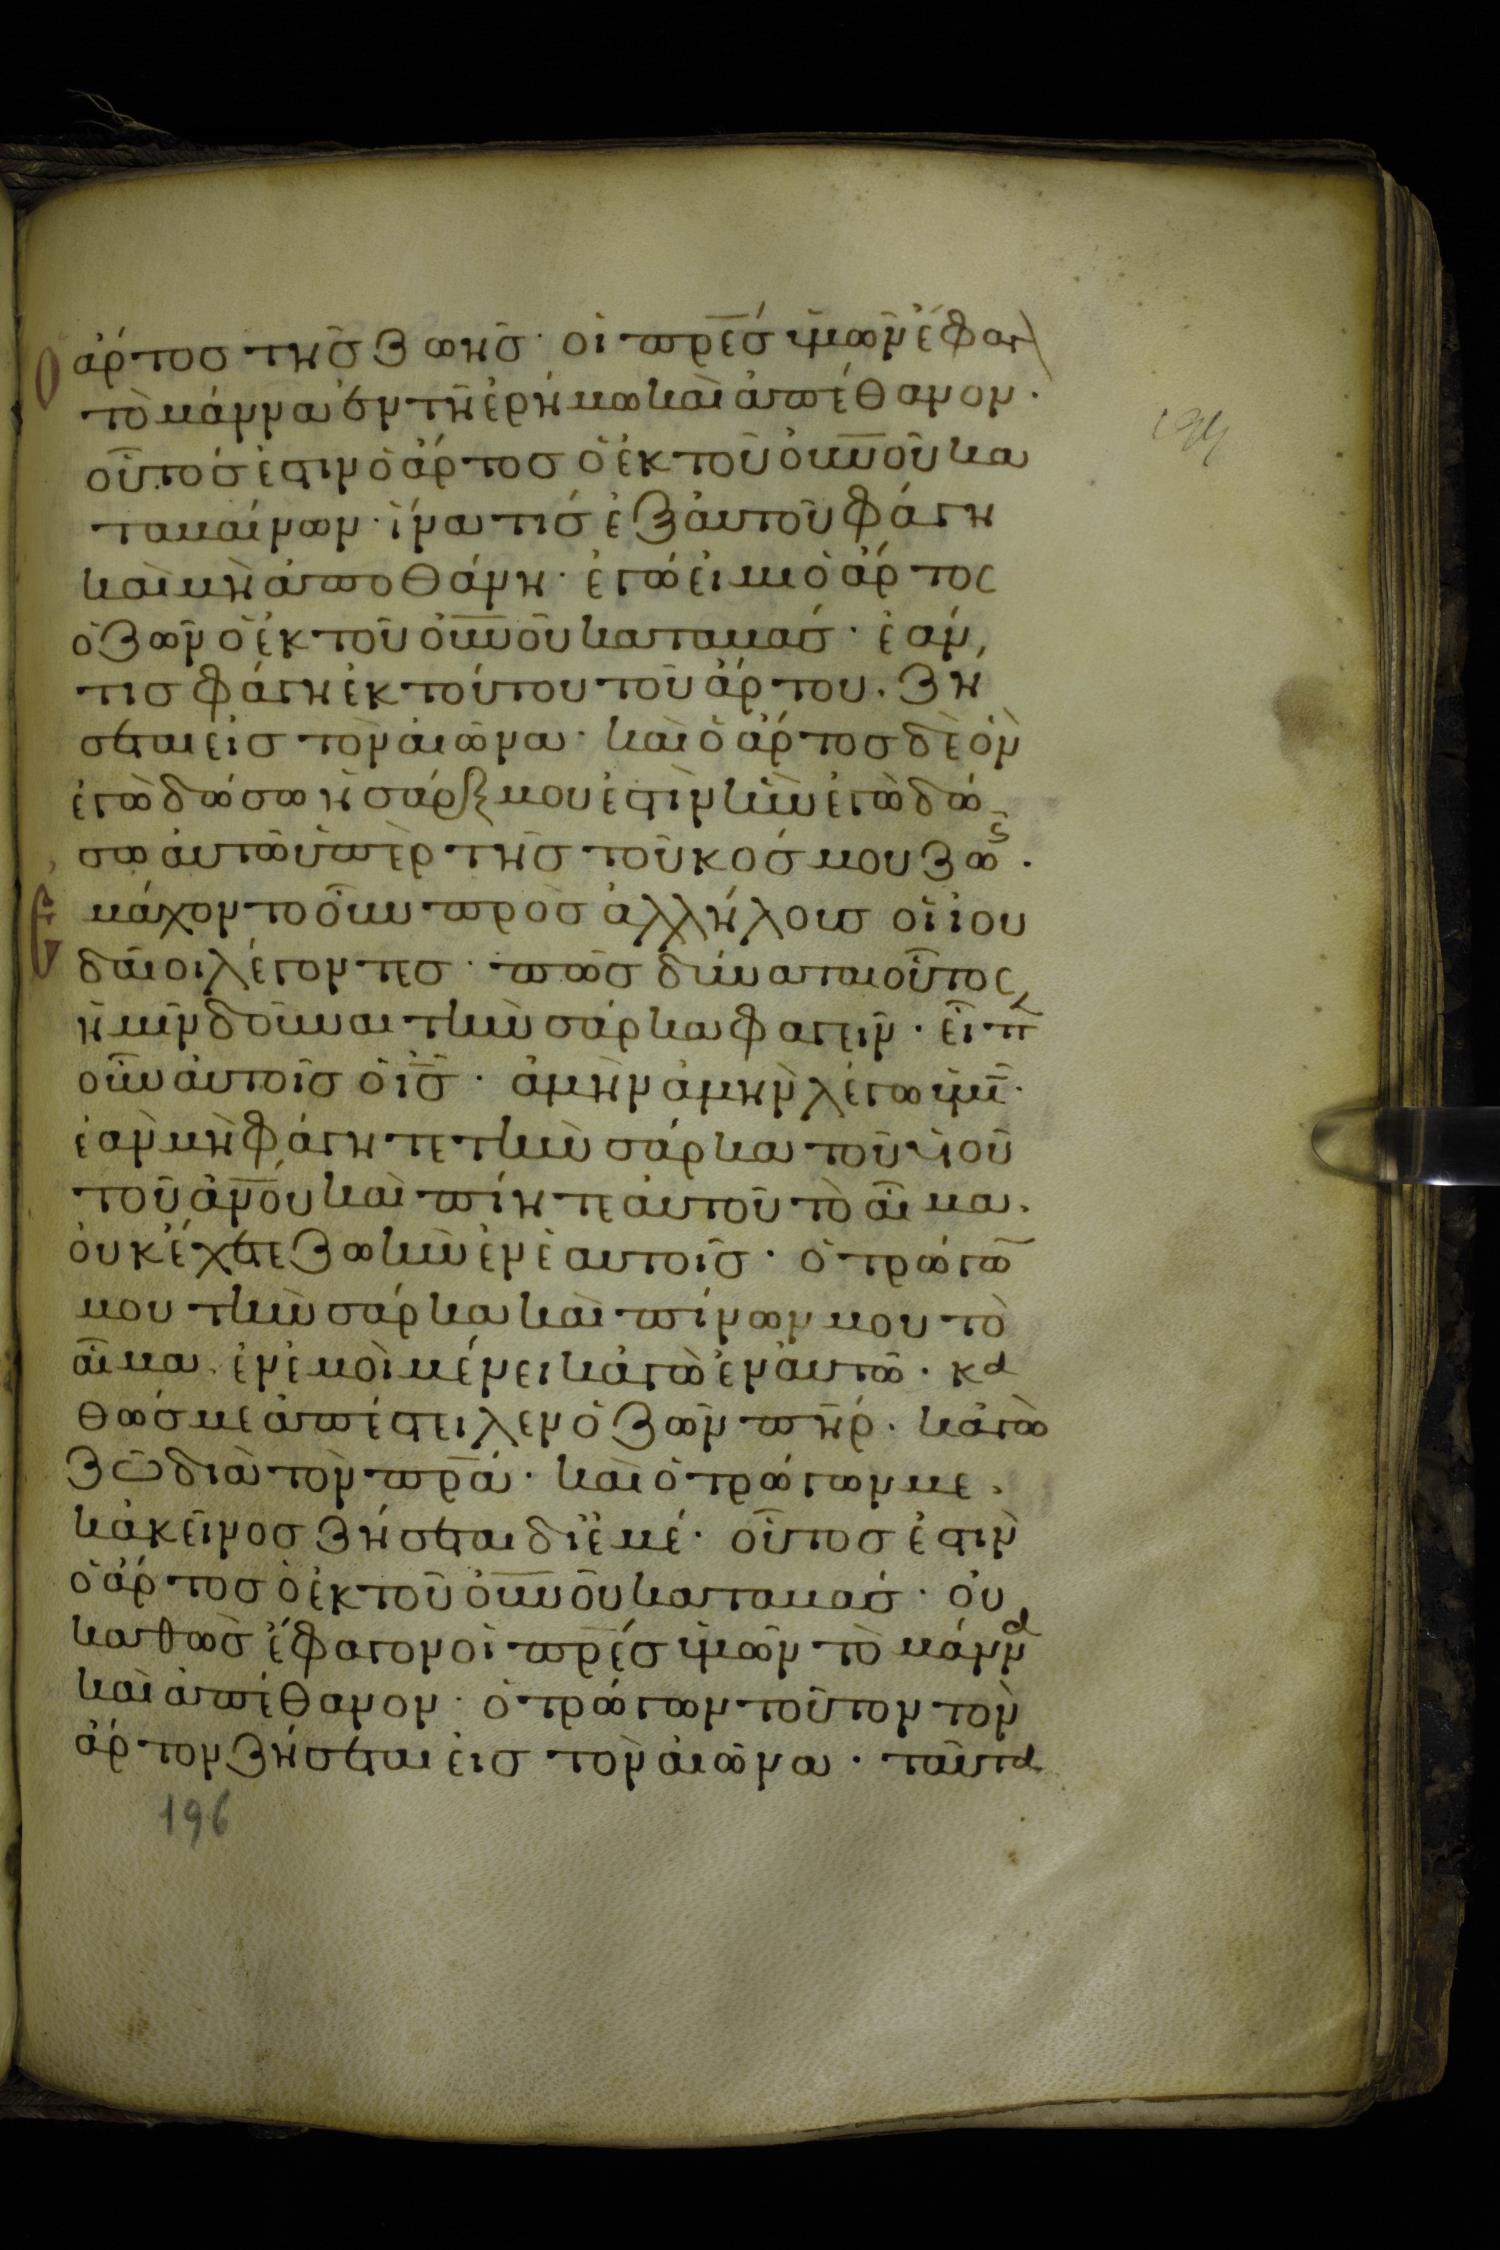 Ὁ ἄρτος τῆς ζωῆς· οἱ πρ̅ε̅ς ὑμῶν ἔφαγ
τὸ μάννα ἐν τῇ ἐρήμω καὶ ἀπέθανον·
οὗτός ἐστιν ὁ ἄρτος ὁ ἐκ τοῦ ο̅υ̅ν̅ο̅υ̅ κα
ταβαίνων· ἵνα τις ἐξ αὐτοῦ φάγη
καὶ μὴ ἀποθάνη· ἐγώ εἰμι ὁ ἄρτος
ὁ ζῶν ὁ ἐκ τοῦ ο̅υ̅ν̅ο̅υ̅ καταβάς· ἐάν
τις φάγη ἐκ τούτου τοῦ ἄρτου. ζή
σεται εἰς τὸν αἰῶνα· καὶ ὁ ἄρτος δὲ ὃν
ἐγὼ δώσω ἡ σάρξ μου ἐστὶν ἣν ἐγὼ δώ
σω αὐτῶ ὑπὲρ τῆς τοῦ κόσμου ζωῆς·
Ἐμάχοντο οὖν πρὸς ἀλλήλους οἱ ἰου
δαῖοι λέγοντες· πῶς δύναται οὗτος
ἡμῖν δοῦναι τὴν σάρκα φαγεῖν· εἶπ
οὖν αὐτοῖς ὁ ι̅ς̅· ἀμὴν ἀμὴν λέγω ὑμῖ·
ἐὰν μὴ φάγητε τὴν σάρκα τοῦ υἱοῦ
τοῦ α̅ν̅ο̅υ̅ καὶ πίητε αὐτοῦ τὸ αἷμα.
οὐκ ἔχετε ζωὴν ἐν ἑαυτοῖς· ὁ τρώγω
μου τὴν σάρκα καὶ πίνων μου τὸ
αἷμα. ἐν ἐμοὶ μένει κἀγὼ ἐν αὐτῶ· κα
θώς με ἀπέστειλεν ὁ ζῶν π̅η̅ρ̅· κἀγὼ
ζῶ διὰ τὸν π̅ρ̅α̅· καὶ ὁ τρώγων με.
κἀκεῖνος ζήσεται δι ἐμέ· οὗτος ἐστὶν
ὁ ἄρτος ὁ ἐκ τοῦ ο̅υ̅ν̅ο̅υ̅ καταβάς· οὐ
καθὼς ἔφαγον οἱ πρ̅ε̅ς ὑμῶν τὸ μάννα
καὶ ἀπέθανον· ὁ τρώγων τοῦτον τὸν
ἄρτον ζήσεται εἰς τὸν αἰῶνα· ταῦτα
196